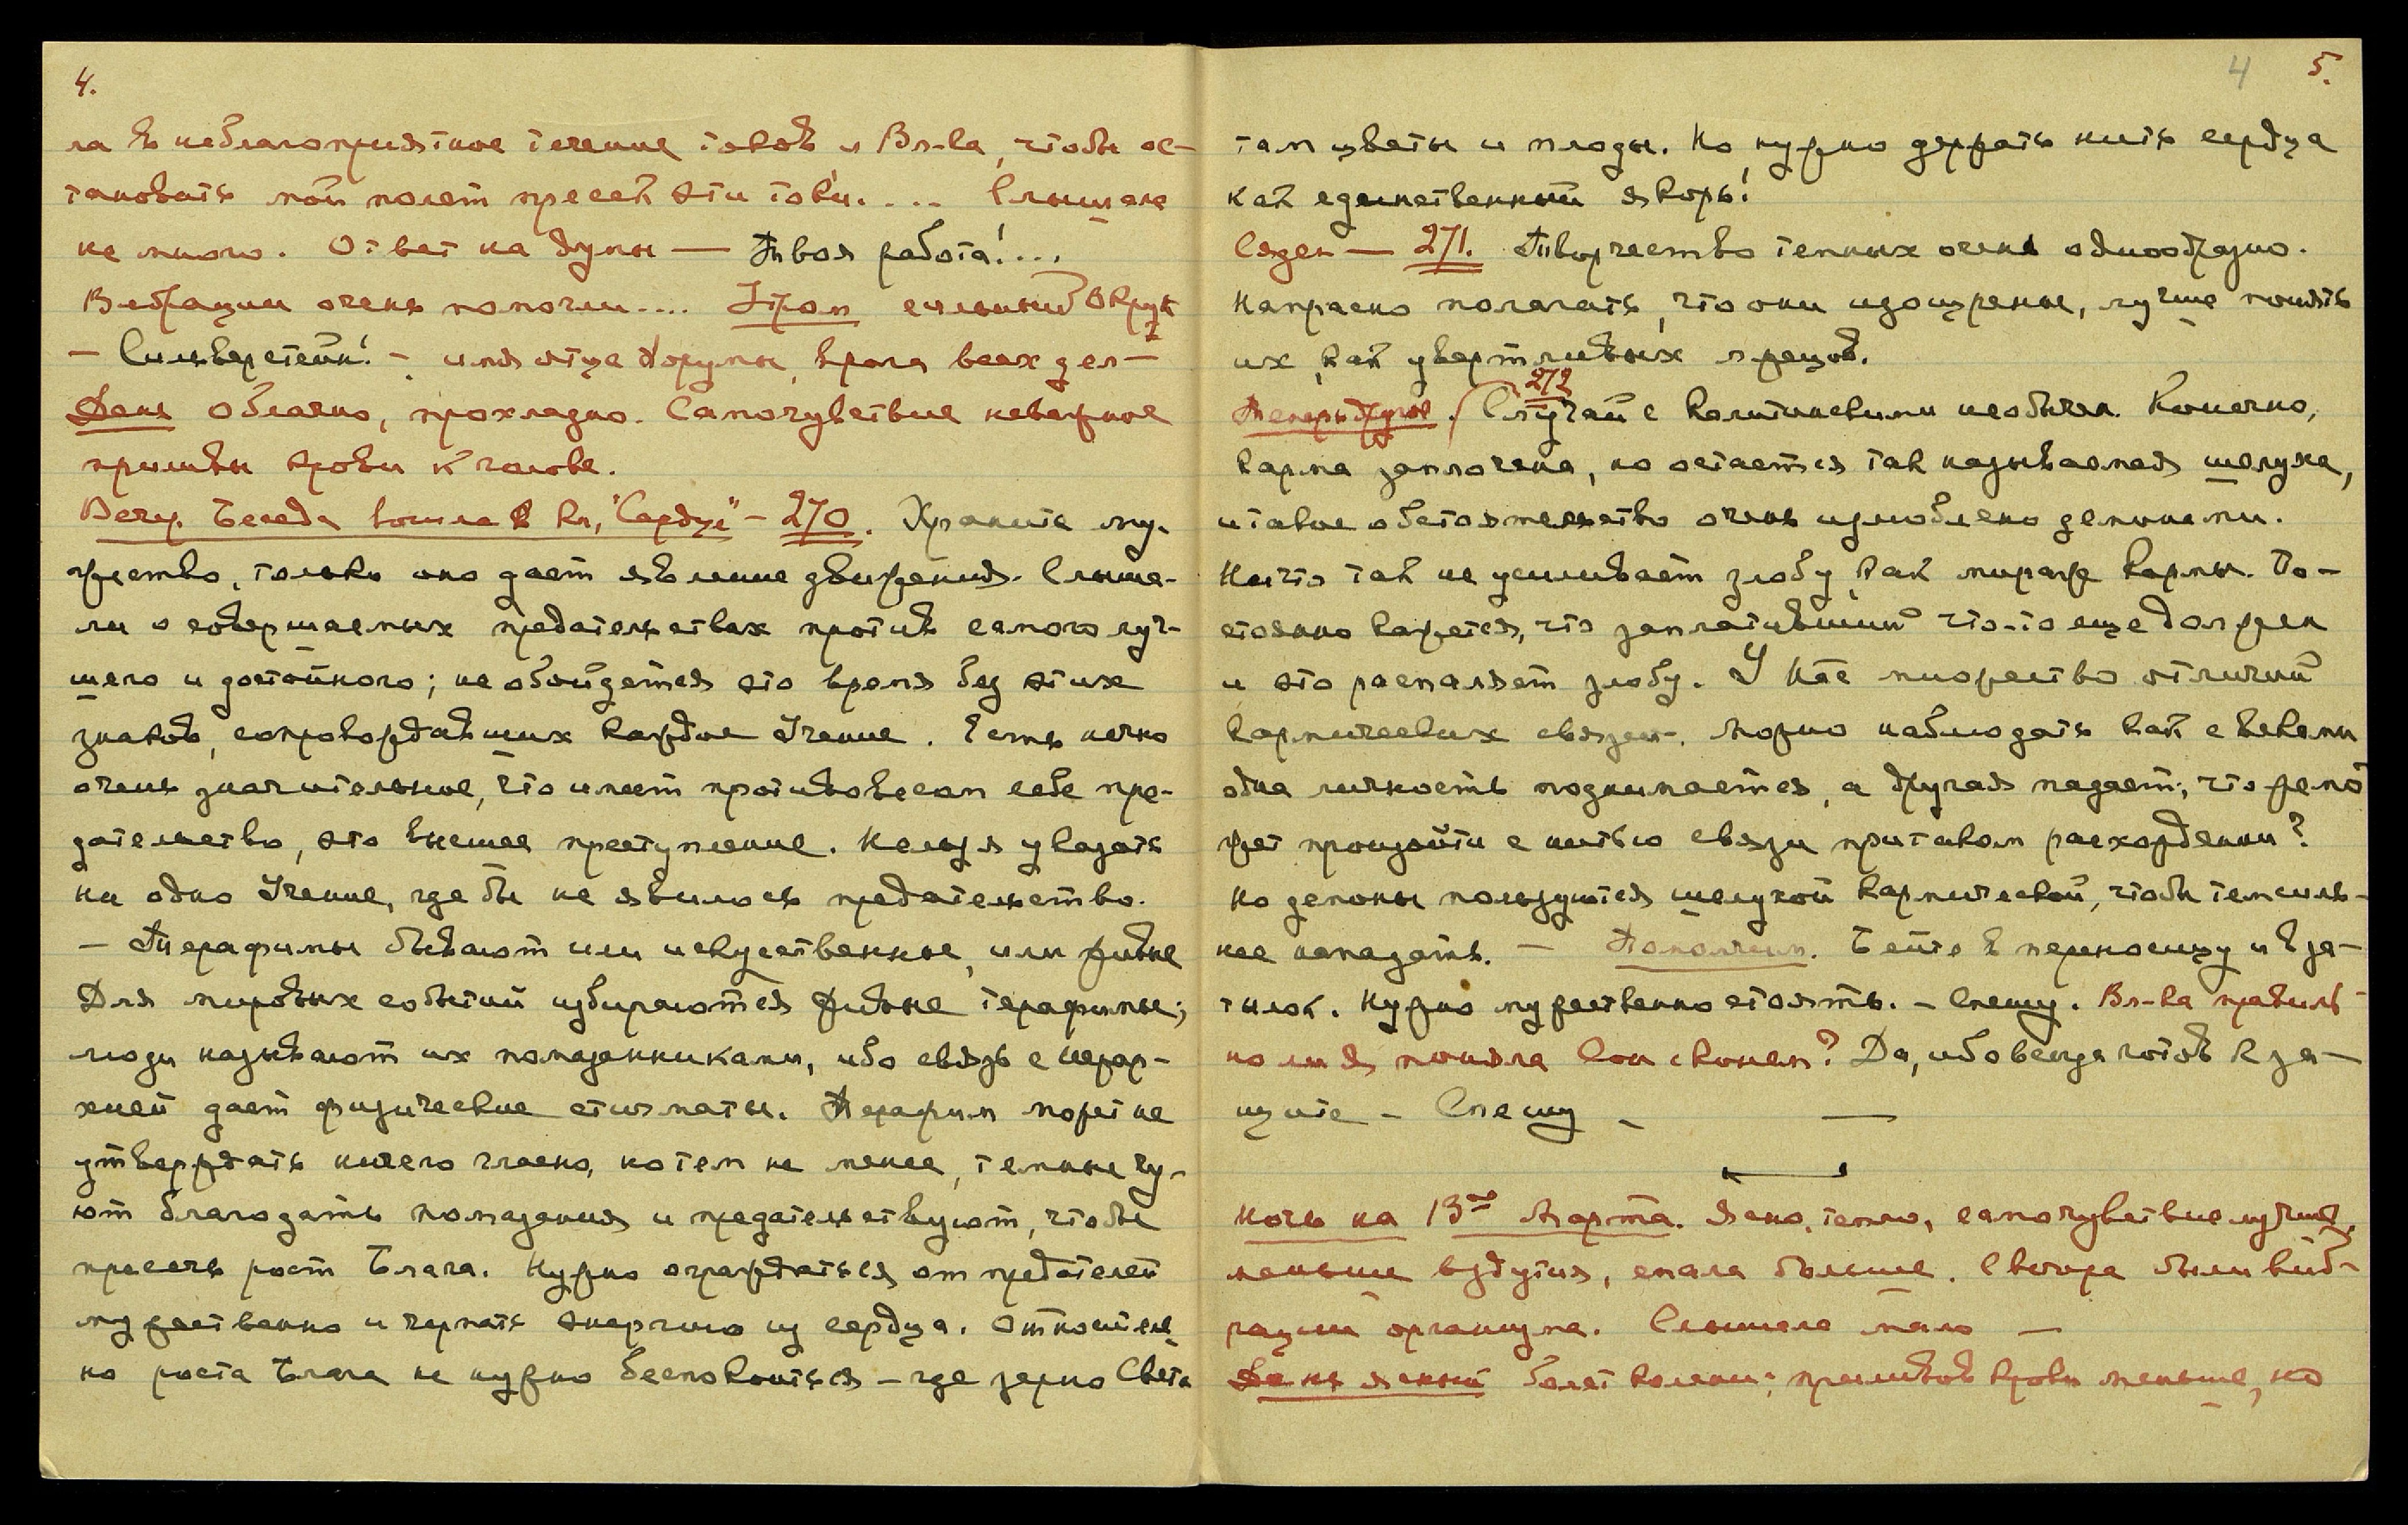 4.
ла в неблагоприятное течение токов и Вл-ка, чтобы ос-
тановить мой полет пресек эти токи. ... Слышала
не много. Ответ на думы — Твоя работа! ...
Вибрации очень помогли.... Утром сильный окрик
— Сильверстейн! - имя отца Норумы, врага всех дел —
День облачно, прохладно. Самочувствие неважное
приливы крови к голове.
Вечер. Беседа вошла в кн. "Сердце" - 270. Храните му-
жество, только оно дает явление движения. Слыша-
ли о совершаемых предательствах против самого луч-
шего и достойного; не обойдется это время без этих
знаков, сопровождавших каждое Учение. Есть нечто
очень значительное, что имеет противовесом себе пре-
дательство, это высшее преступление. Нельзя указать
ни одно Учение, где бы не явилось предательство.
— Терафимы бывают или искусственные, или живые
Для мировых событий избираются живые терафимы;
люди называют их помазанниками, ибо связь с Иерар-
хией дает физические стигматы. Терафим может не
утверждать ничего гласно, но тем не менее, темные чу-
ют благодать помазания и предательствуют, чтобы
пресечь рост Блага. Нужно ограждаться от предателей
мужественно и черпать энергию из сердца. Относитель-
но роста Блага не нужно беспокоиться — где зерно Света
4 5.
там цветы и плоды. Но, нужно держать нить сердца
как единственный якорь!
Сяден — 271. Творчество темных очень однообразно.
Напрасно полагать, что они изощрены, лучше понять
их, как увертливых лжецов.
Теперь другое. 272 Случай с Колитиневыми необычен. Конечно,
карма заплочена, но остается так называемая шелуха,
и такое обстоятельство очень излюблено демонами.
Ничто так не усиливает злобу, как мираж кармы. По-
стоянно кажется, что заплативший что-то еще должен
и это распаляет злобу. У Нас множество отличий
кармических связей. Можно наблюдать как с веками
одна личность поднимается, а другая падает; что же мо
жет произойти с нитью связи при таком расхождении?
Но демоны пользуются шелухой кармической, чтобы тем силь-
нее нападать. — Пополним. Бейте в переносицу и в за-
тылок. Нужно мужественно стоять. — Спешу. Вл-ка правиль-
но ли я поняла Сон с конем? Да, ибо всегда готов к за-
щите — Спешу —
Ночь на 13ое Марта. Ясно, тепло, самочувствие лучше,
меньше вздутия, спала больше. С вечера были виб-
рации организма. Слышала мало —
День ясный болят колени; приливов крови меньше, но